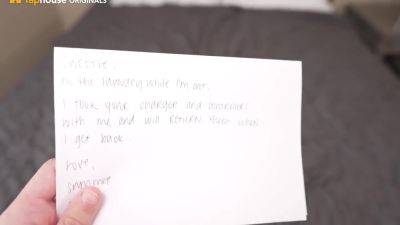 Taphouse ORIGINALS
the laundry while I'm out.
I took your charger and
with me and will RETURN when
I get back.
Love,